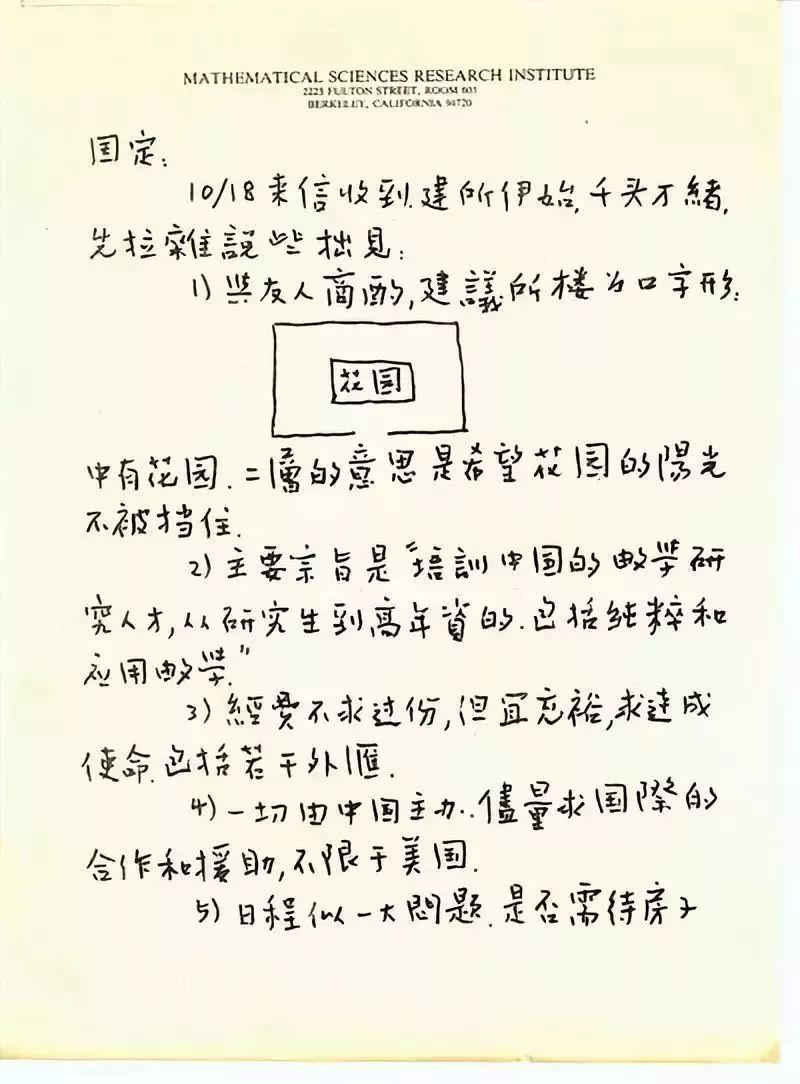 MATHEMATICAL SCIENCES RESEARCH INSTITUTE
2223 FULTON STREET, ROOM 603
BERKELEY, CALIFORNIA 94720
国定:
10/18来信收到.建所伊始,千头万緒,
先拉雜説些拙見:
1)與友人商酌,建議所楼为口字形:
花园
中有花园.二層的意思是希望花园的陽光
不被挡住.
2)主要宗旨是“培訓中国的数学研
究人才,从研究生到高年資的.包括纯粹和
应用数学."
3)經費不求过份,但宜充裕,求達成
使命.包括若干外匯.
4)一切由中国主办.儘量求国際的
合作和援助,不限于美国.
5)日程似一大問題.是否需待房子